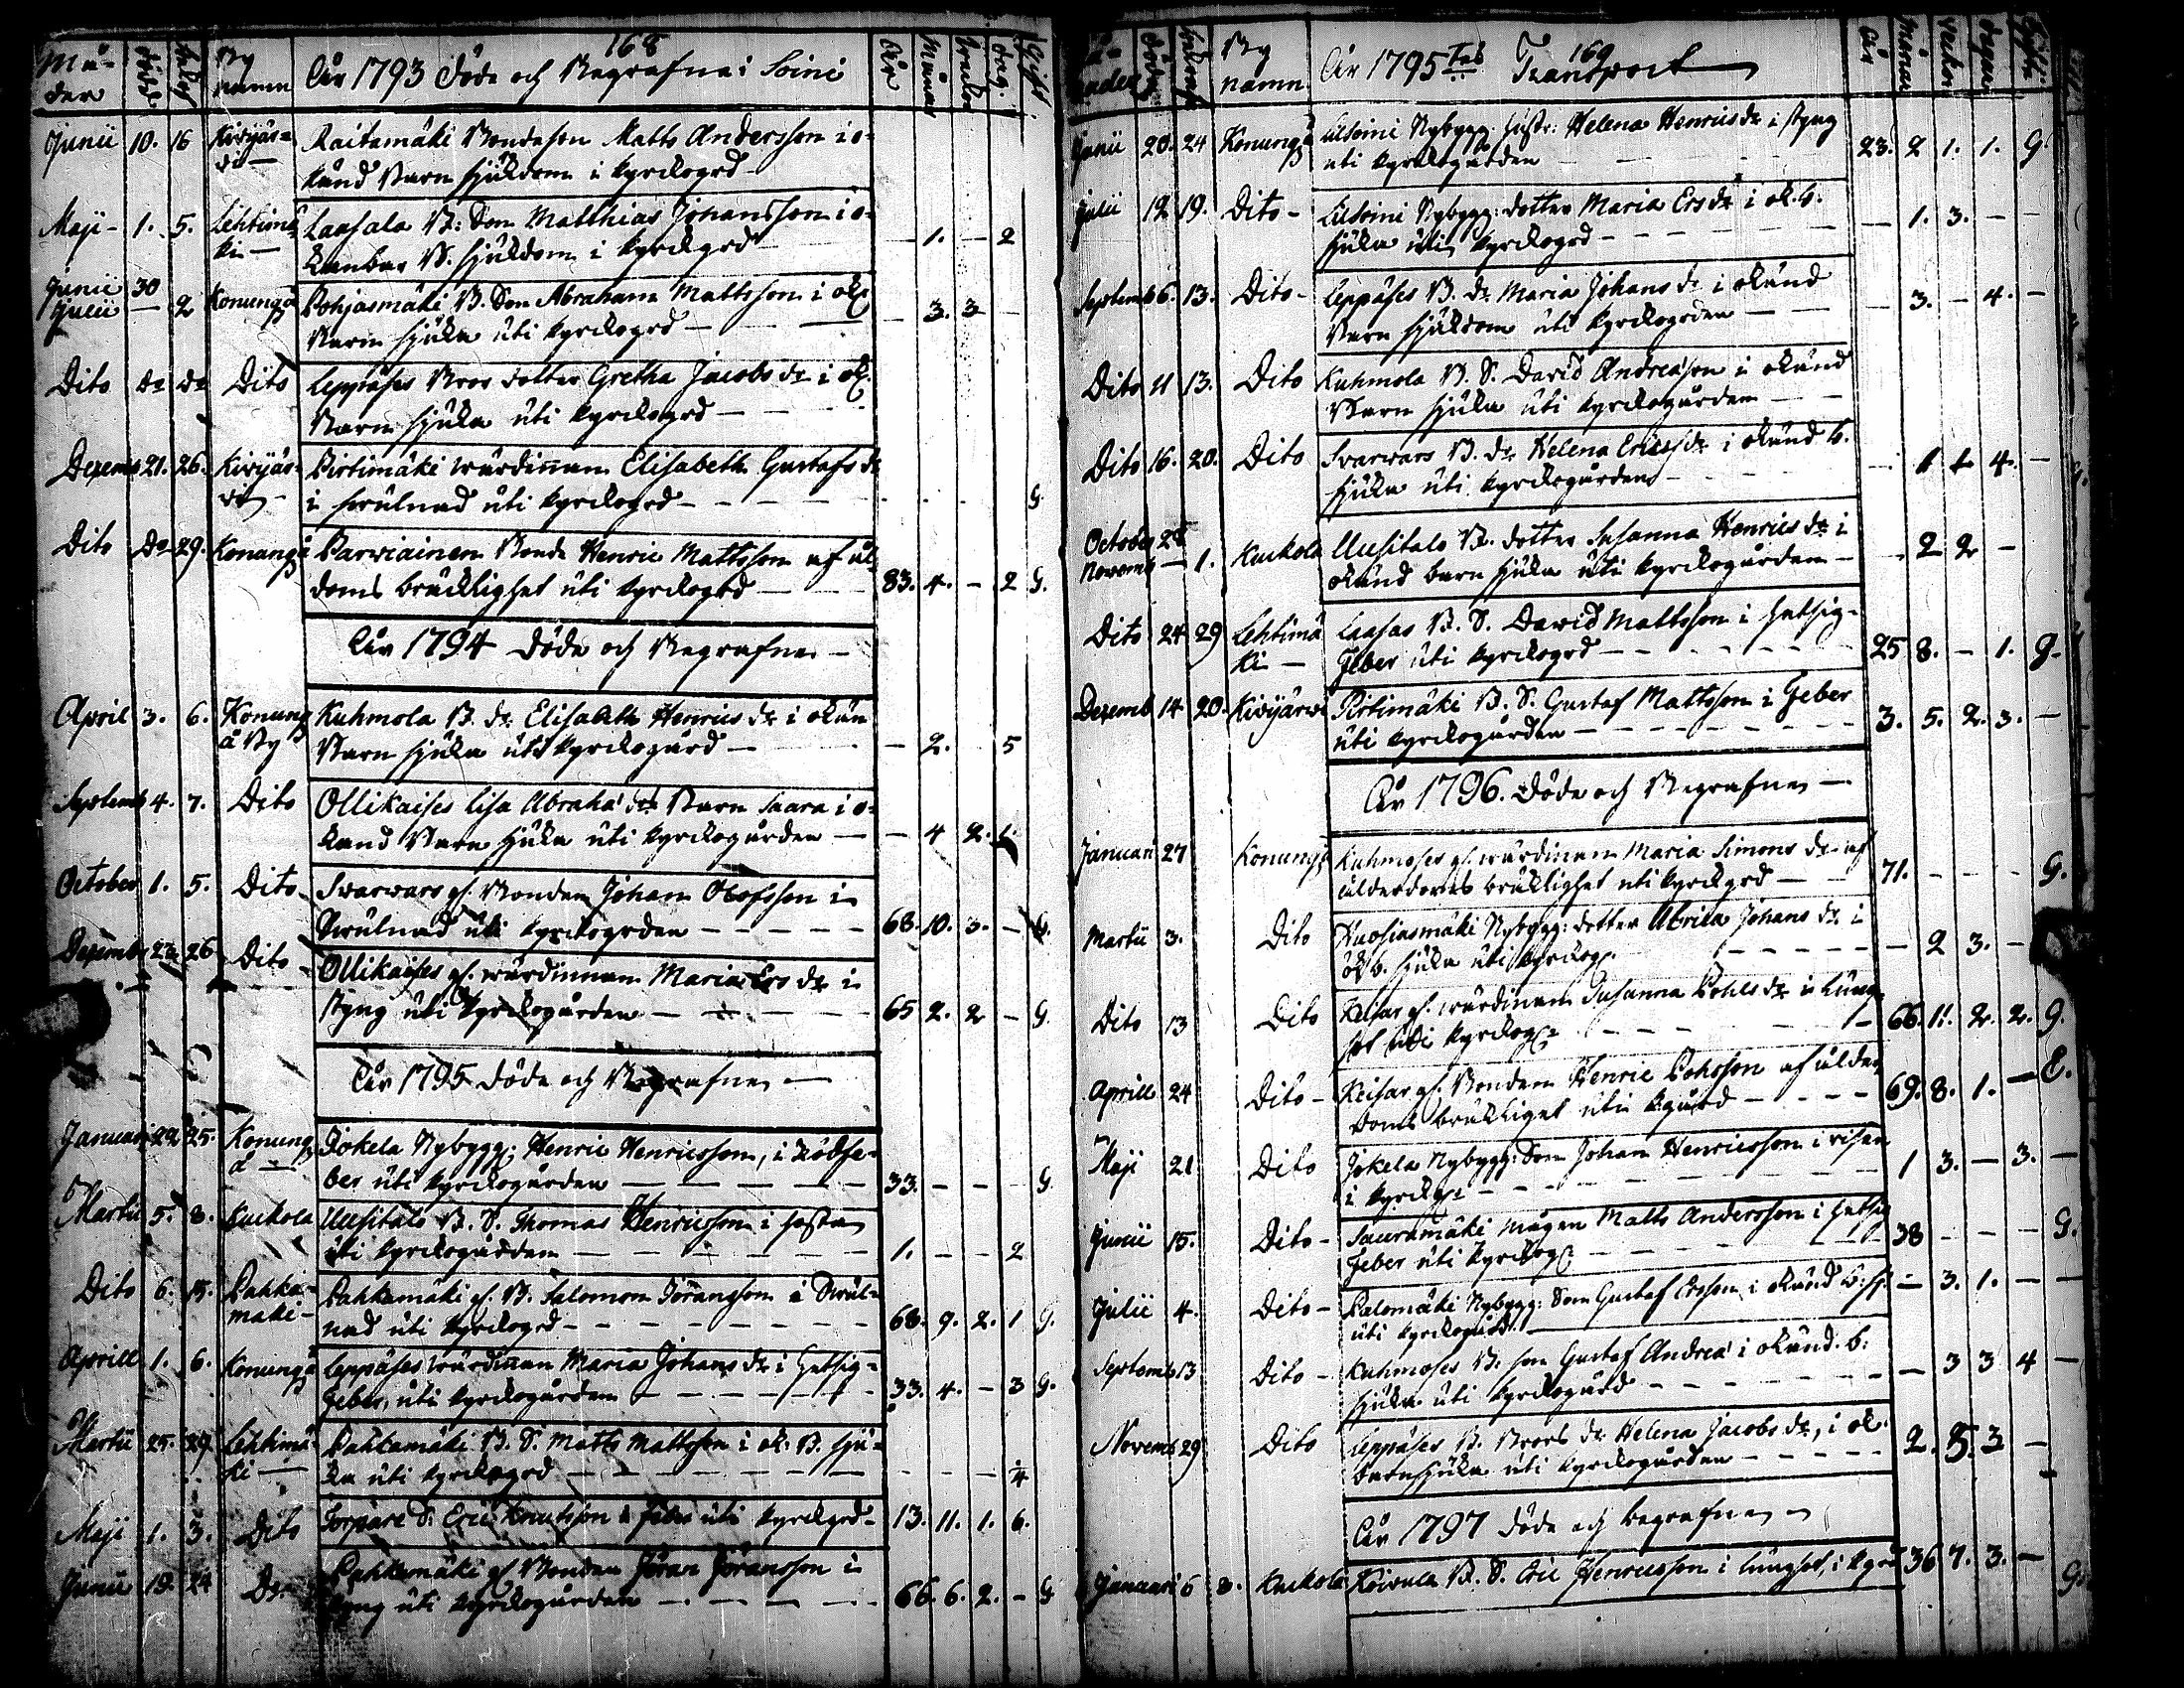 168
Må-
der
död
By
namn
År 1793 döde och Begrafne i Soini
År
Månar
Veckor
dag.
Gift
Junii 10. 16 Kivijär-
vi — Raitamäki Bondeson Matts Andersson i o-
känd Barn sjukdom i kyrkogrd
Maji 1. 5. Lehtimä-
ki — Laasala B: Son Matthias Johansson i o-
kanbar B. sjukdom i kyrkgrd — 1. — 2
Junii 30
Julii — 2 Konungå Pohjasmäki B. Son Abraham Mattsson i ok
Barn sjuka uti kyrkogrd — — 3. 3 —
Dito Do Do Dito Leppäses Bror dotter Gretha Jacobs dr i ok.
Barn sjuka uti kyrkogrd —
Dezemb 21. 26. Kivijär-
vi Pirtimäki wärdinnan Elisabeth Gustafs dr
i swulnad uti kyrkogrd — — — G.
Dito Do 29. Konungå Parwiainen Bonde Henric Mattsson af ål-
doms bräcklighet uti kyrkogrd — 83. 4. — 2 G.
År 1794 döde och Begrafne —
April 3. 6. Konung
å By Kuhmola B. dr Elisabeth Henrics dr i okän
Barn sjuka uti kyrkogård — — 2. 5
Septemb 4. 7. Dito Ollikaises Lisa Abraha' dr Barn Saara i o-
känd Barn sjuka uti kyrkogården — — 4 2. 6
October 1. 5. Dito Swarwars gl. Bonden Johan Olofsson i
Swulnad uti kyrkogrden — — 68. 10. 3. — G.
Dezemb 23 26 Dito Ollikaises gl. wärdinnan Maria Ers dr i
styng uti kyrkogården — — 65 2. 2 — G.
År 1795 döde och Begrafne —
Januari 22 25. Konung
å — Jokela Nybygg: Henric Henricsson, i Rödfe-
ber uti kyrkogården — — 33. — — — G.
Martii 5. 8. Kuckola Uusitalo B. S. Thomas Henricsson i hosta
uti kyrkogården — — 1. — — 2
Dito 6. 15. Pahka-
mäki Pahkamäki gl. B. Salomon Jöransson i Swul-
nad uti kyrkogrd — — 68. 9. 2. 1 G.
Aprill 1. 6. Konungå Leppäses wärdinnan Maria Johans dr i hetsig-
feber, uti kyrkogården — — 33. 4. — 3 G.
Martii 25. 29. Lehtimä-
ki — Pahkamäki B. S. Matts Mattsson i ok. B. sju-
ka uti kyrkogrd — — — — — ¼
Maji 1. 3. Dito Torpare S. Eric Knutsson i feber uti kyrkgrd — 13. 11. 1. 6.
Junii 19. 24 Do Pahkamäki gl Bonden Jöran Jöransson i
styng uti kyrkogården — — 66. 6. 2. — G
169
By
namn
År 1795 Tas Transport
År
Månar
veckor
dagar
Junii 20. 24 Konungå Alsoini Nybygg. hustr: Helena Henrics dr i styng
uti kyrkogården — 23. 2 1. 1. G
Julii 12 19. Dito — Alsoini Nybygg: dotter Maria Ers dr i ok. b.
sjuka uti kyrkogrd — — 1. 3. — —
Septemb 6. 13. Dito — Leppäses B. dr Maria Johans dr i okänd
Barn sjukdom uti kyrkogrden — — 3. — 4. —
Dito 11 13. Dito Kuhmola B. S. David Andreasson i okänd
Barn sjuka uti kyrkogården —
Dito 16. 20. Dito Swarwars B. dr Helena Erics dr i okänd b.
sjuka uti kyrkogården — 1 1 4. —
October 28
Novemb — 1. Kuckola Uusitalo B. dotter Susanna Henrics dr i
okänd barn sjuka uti kyrkogården — 2 2 —
Dito 24 29 Lehtimä
ki — Laasas B. S. David Mattsson i hetsig-
feber uti kyrkogrd — — 25 8. — 1. G.
Dezemb 14 20. Kivijärwi Pirtimäki B. S. Gustaf Mattsson i feber
uti kyrkogården — — 3. 5. 2. 3. —
År 1796. döde och Begrafne —
Januari 27 Konungå Kuhmoses gl. wärdinnan Maria Simons dr af
ålderdoms bräcklighet uti kyrkgrd — 71. — — — G.
Martii 3. Dito Kuosiasmäki Nybygg: dotter Abrica Johans dr i
ok b. sjuka uti kyrkog. — — 2 3. —
Dito 13 Dito Keisar gl. wärdinnan Susanna Pohls dr i lung
sot uti kyrkog. — 66. 11. 2. 2. G.
Aprill 24 Dito — Keisar gl. Bonden Henric Pohlsson af ålder
doms bräcklighet uti kgård — 69. 8. 1. — E.
Maji 21 Dito Jokela Nybygg: Son Johan Henricsson i risen
i kyrkog. — 1 3. — 3. —
Junii 15. Dito — Sauramäki mågen Matts Andersson i hetsig
feber uti kyrkog. — 38 — — — G.
Julii 4. Dito — Palomäki Nybygg: Son Gustaf Ersson i okänd b: sj. — 3. 1. — —
uti kyrkogård
Septemb 13 Dito — Kuhmoses B. son Gustaf Andrea' i okänd. b:
sjuka uti kyrkogård — — 3 3 4 —
Novemb 29 Dito Leppäses B. Brors dr Helena Jacobs dr, i ok.
barnsjuka uti kyrkogården — 2. 5. 3 —
År 1797 döde och begrafne —
Januari 6 8. Kuckola Koivula B. S. Eric Henricsson i lungsot, i kgrd 36 7. 3. — G.